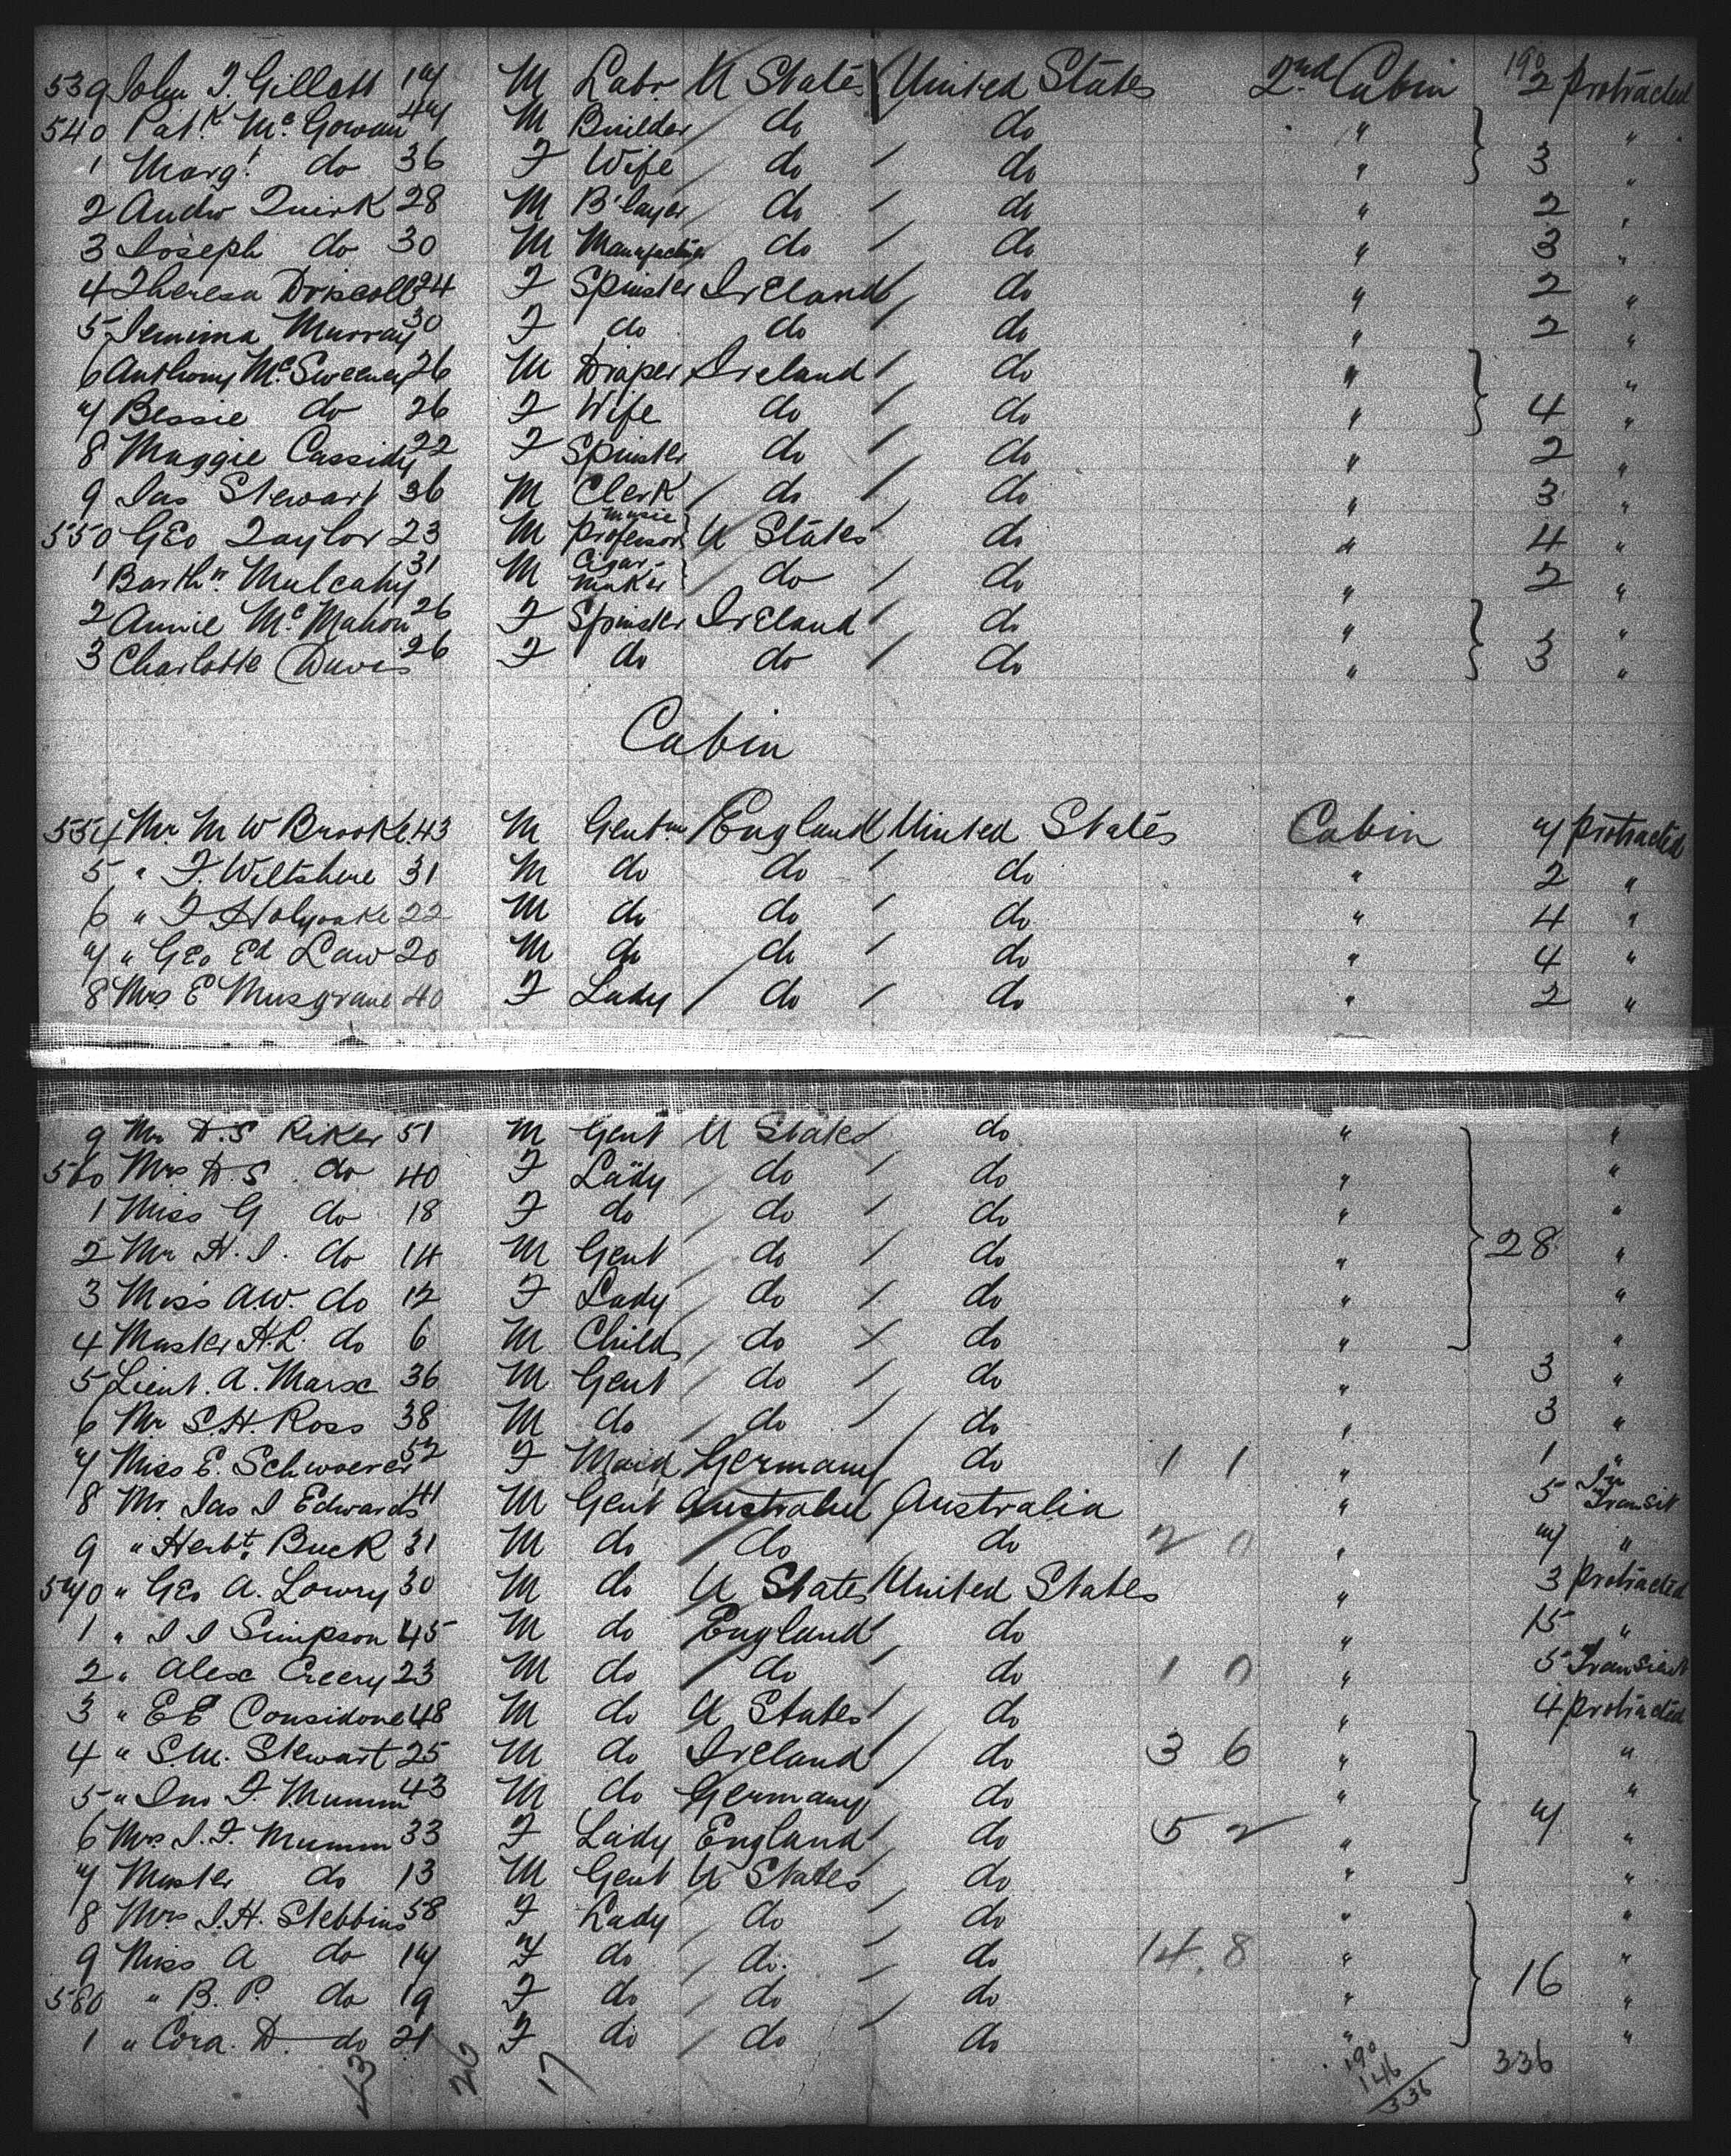 190
539 John J. Gillett 17 M Labr U States United States 2nd Cabin 2 Protracted
540 Patk McGowan 47 M Builder do do " "
1 Margt do 36 F Wife do do " 3 "
2 Andw Quirk 28 M B'layer do do " 2 "
3 Joseph do 30 M Manufacturer do do " 3 "
4 Theresa Driscoll 24 F Spinster Ireland do " 2 "
5 Jemima Murray 30 F do do do " 2 "
6 Anthony McSweeney 26 M Draper Ireland do " "
7 Bessie do 26 F Wife do do " 4 "
8 Maggie Cassidy 22 F Spinster do do " 2 "
9 Jas Stewart 36 M Clerk do do " 3 "
550 Geo Taylor 23 M Music Professor U States do " 4 "
1 Barthw Mulcahy 31 M Cigar-Maker do do " 2 "
2 Annie McMahon 26 F Spinster Ireland do " "
3 Charlotte Davis 26 F do do do " 3 "
Cabin
554 Mr M W Brooke 43 M Gentm England United States Cabin 7 Protracted
5 " F. Wiltshire 31 M do do do " 2 "
6 " F Holyoake 22 M do do do " 4 "
7 " Geo Ed Law 20 M do do do " 4 "
8 Mrs E Musgrave 40 F Lady do do " 2 "
9 Mr D.S Riker 51 M Gent U States do " "
560 Mrs D.S. do 40 F Lady do do " "
1 Miss G do 18 F do do do " "
2 Mr H.J. do 14 M Gent do do " 28 "
3 Miss A.W. do 12 F Lady do do " "
4 Master H.L. do 6 M Child do do " "
5 Lieut. A. Marx 36 M Gent do do " 3 "
6 Mr S.H. Ross 38 M do do do " 3 "
7 Miss E. Schwoerer 52 F Maid Germany do 1 1 " 1 "
8 Mr. Jas J Edwards 41 M Gent Australia Australia " 5 In Transit
9 " Herbt. Buck 31 M do do do 2 0 " 7 "
570 " Geo A. Lowry 30 M do U States United States " 3 Protracted
1 " J J Simpson 45 M do England do " 15 "
2 " Alex Creery 23 M do do do 1 0 " 5 Transient
3 " E E Considone 48 M do U States do " 4 Protracted
4 " S.M. Stewart 25 M do Ireland do 3 6 " "
5 " Jno F. Mumm 43 M do Germany do " "
6 Mrs J.F. Mumm 33 F Lady England do 5 2 " 7 "
7 Master do 13 M Gent U States do " "
8 Mrs J.H. Stebbins 58 F Lady do do " "
9 Miss A do 17 F do do do 14 8 " "
580 " B.P. do 19 F do do do " 16 "
1 " Cora. D. do 21 F do do do " "
43 26 17 190 146 336 336